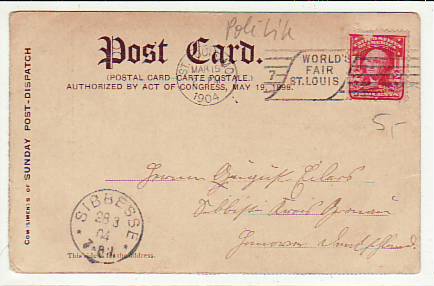 Politik
Post Card.
(POSTAL CARD-CARTE POSTALE.)
AUTHORIZED BY ACT OF CONGRESS, MAY 19, 1898.
COMPLIMENTS OF SUNDAY POST-DISPATCH
ST. LOUIS, MO
MAR 15
1904
7
WORLD'S
FAIR
ST. LOUIS
5,-
Herrn August Eilers
Sibbesse Kreis Gronau
Hannover Deutschland.
SIBBESSE
28 3
04
This side is for the address.